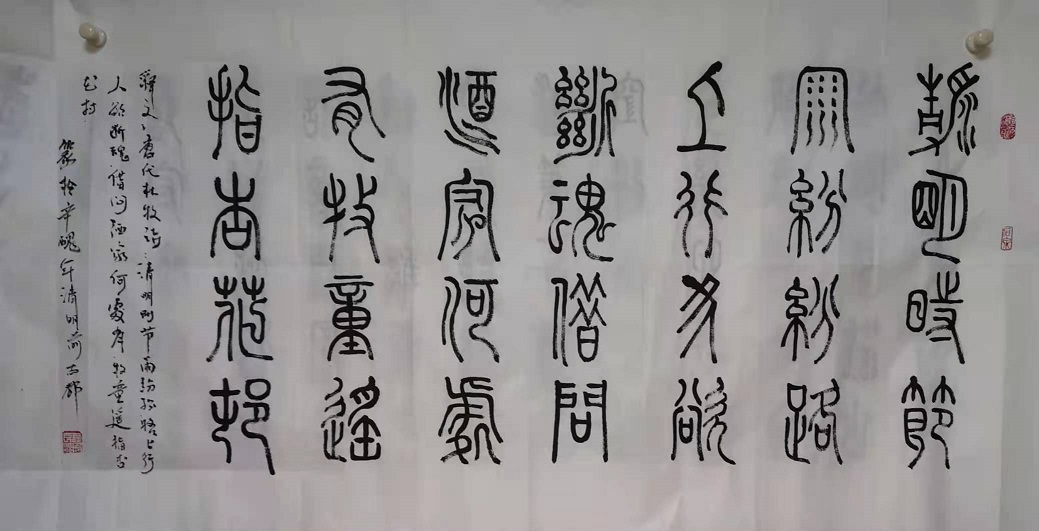 清明時節
雨紛紛路
上行人欲
斷魂借問
酒家何處
有牧童遙
指杏花邨
釋文唐代杜牧詩清明时节雨紛紛路上行
人欲断魂借问酒家何處有牧童遥指杏
花村
年清明前